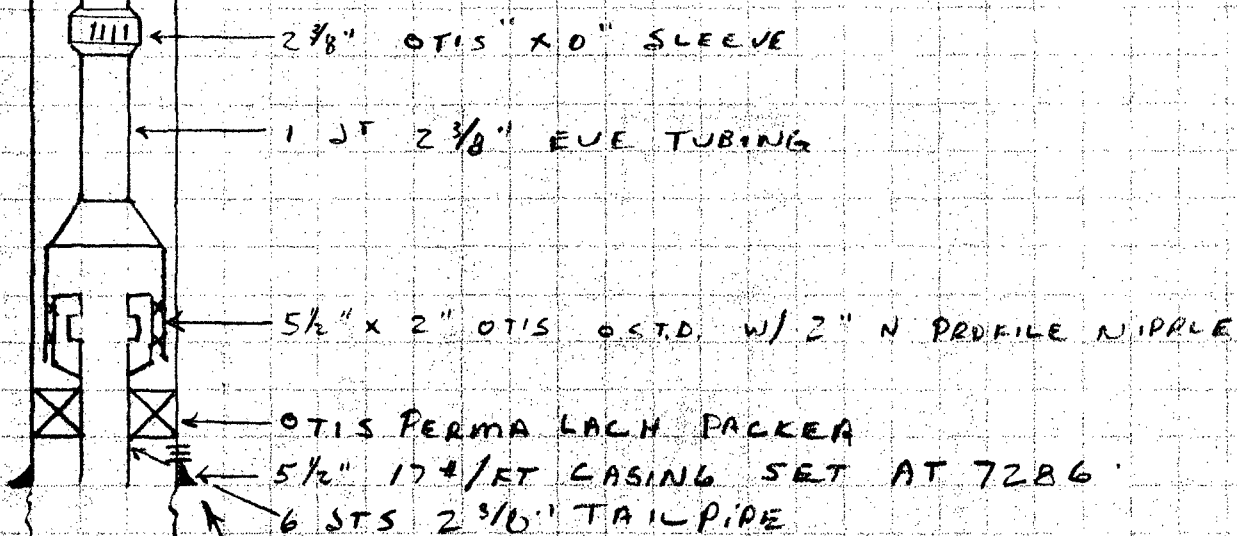 2 3/8" OTIS "XO" SLEEVE
1 JT 2 3/8" EUE TUBING
5 1/2" X 2" OTIS O.S.T.D. W/ 2" N PROFILE NIPPLE
OTIS PERMA LACH PACKER
5 1/2" 17#/FT CASING SET AT 7286'
6 JTS 2 3/8" TAILPIPE